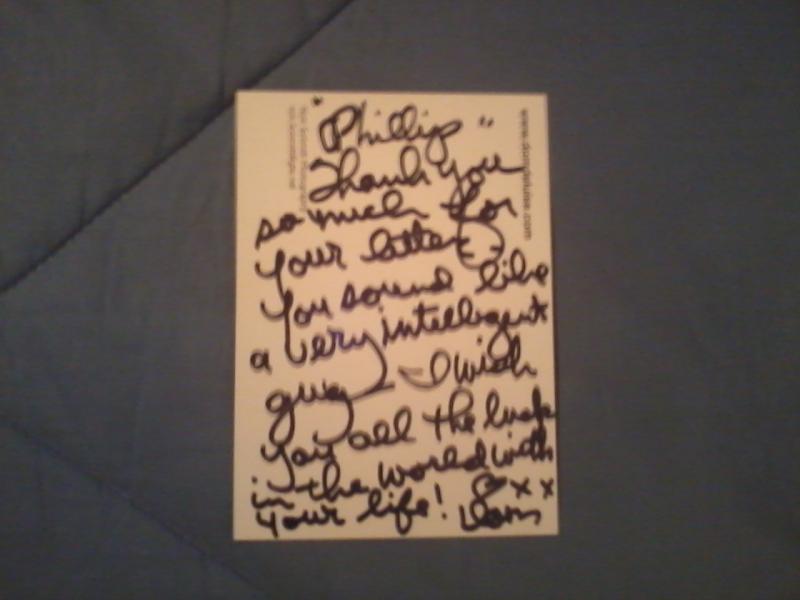 "Phillip"
Thank you
so much for
your letter
You sound like
a very intelligent
guy - I wish
you all the luck
in the world with
your life! xx
Dom
www.domdeluise.com